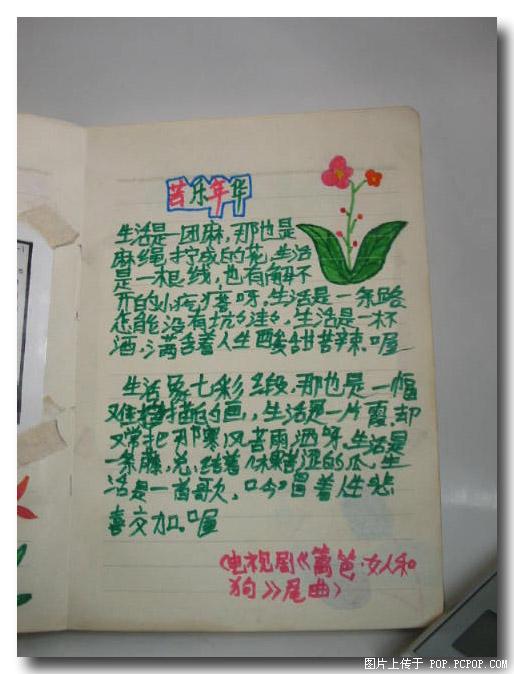 苦乐年华
生活是一团麻,那也是
麻绳拧成的花,生活
是一根线,也有解不
开的小疙瘩呀,生活是一条路
怎能没有坑坑洼洼,生活是一杯
酒,满含着人生酸甜苦辣,喔
生活象七彩缎,那也是一幅
难描的画,生活是一片霞,却
又常把那寒风苦雨洒呀,生活是
一条藤,总结着几颗苦涩的瓜,生
活是一首歌,吟唱着人生悲
喜交加,喔
〈电视剧《篱笆·女人和
狗》尾曲〉
图片上传于 POP.PCPOP.COM